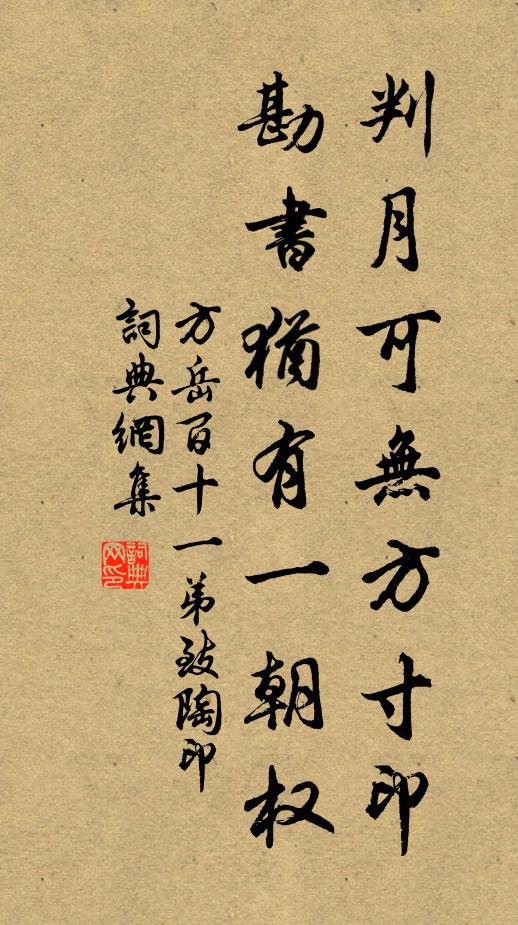 判月可無方寸印
勘書猶有一朝权
方岳百十一弟致陶印
詞典網集
詞典網印